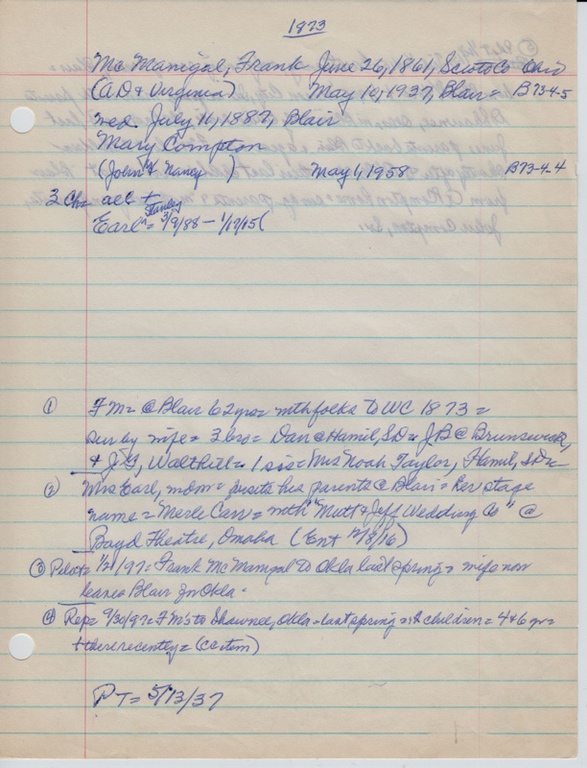 1873
Mc Manigal, Frank June 26, 1861, Scioto Co Ohio
(AD & Virginia) May 10, 1937, Blair = B73-4-5
med July 11, 1887, Blair
Mary Compton
(John & Nancy ) May 1, 1958 B73-4-4
Stanley
Earl = 3/9/88 - 1/17/15(
① FM = @ Blair 62 yrs = with folks to WC 1873 =
sur by wife = 3 bros = Dan @ Hamil, SD = JB @ Brunswick,
& J.G, Walthill = 1 sis = Mrs Noah Taylor, Hamil, SD =
② Mrs Earl, mdm = visits his parents @ Blair = her stage
name = Merle Carr = with "Mutt & Jeff Wedding Co" @
Boyd Theatre, Omaha (Ent 12/8/16)
③ Pilot = 1/21/97 = Frank McManigal to Okla last spring = wife now
leaves Blair for Okla.
④ Rep = 9/30/97 = FM's to Shawnee, Okla = last spring = 2 children = 4 & 6 yr =
& there recently = (cc item)
PT = 5/13/37